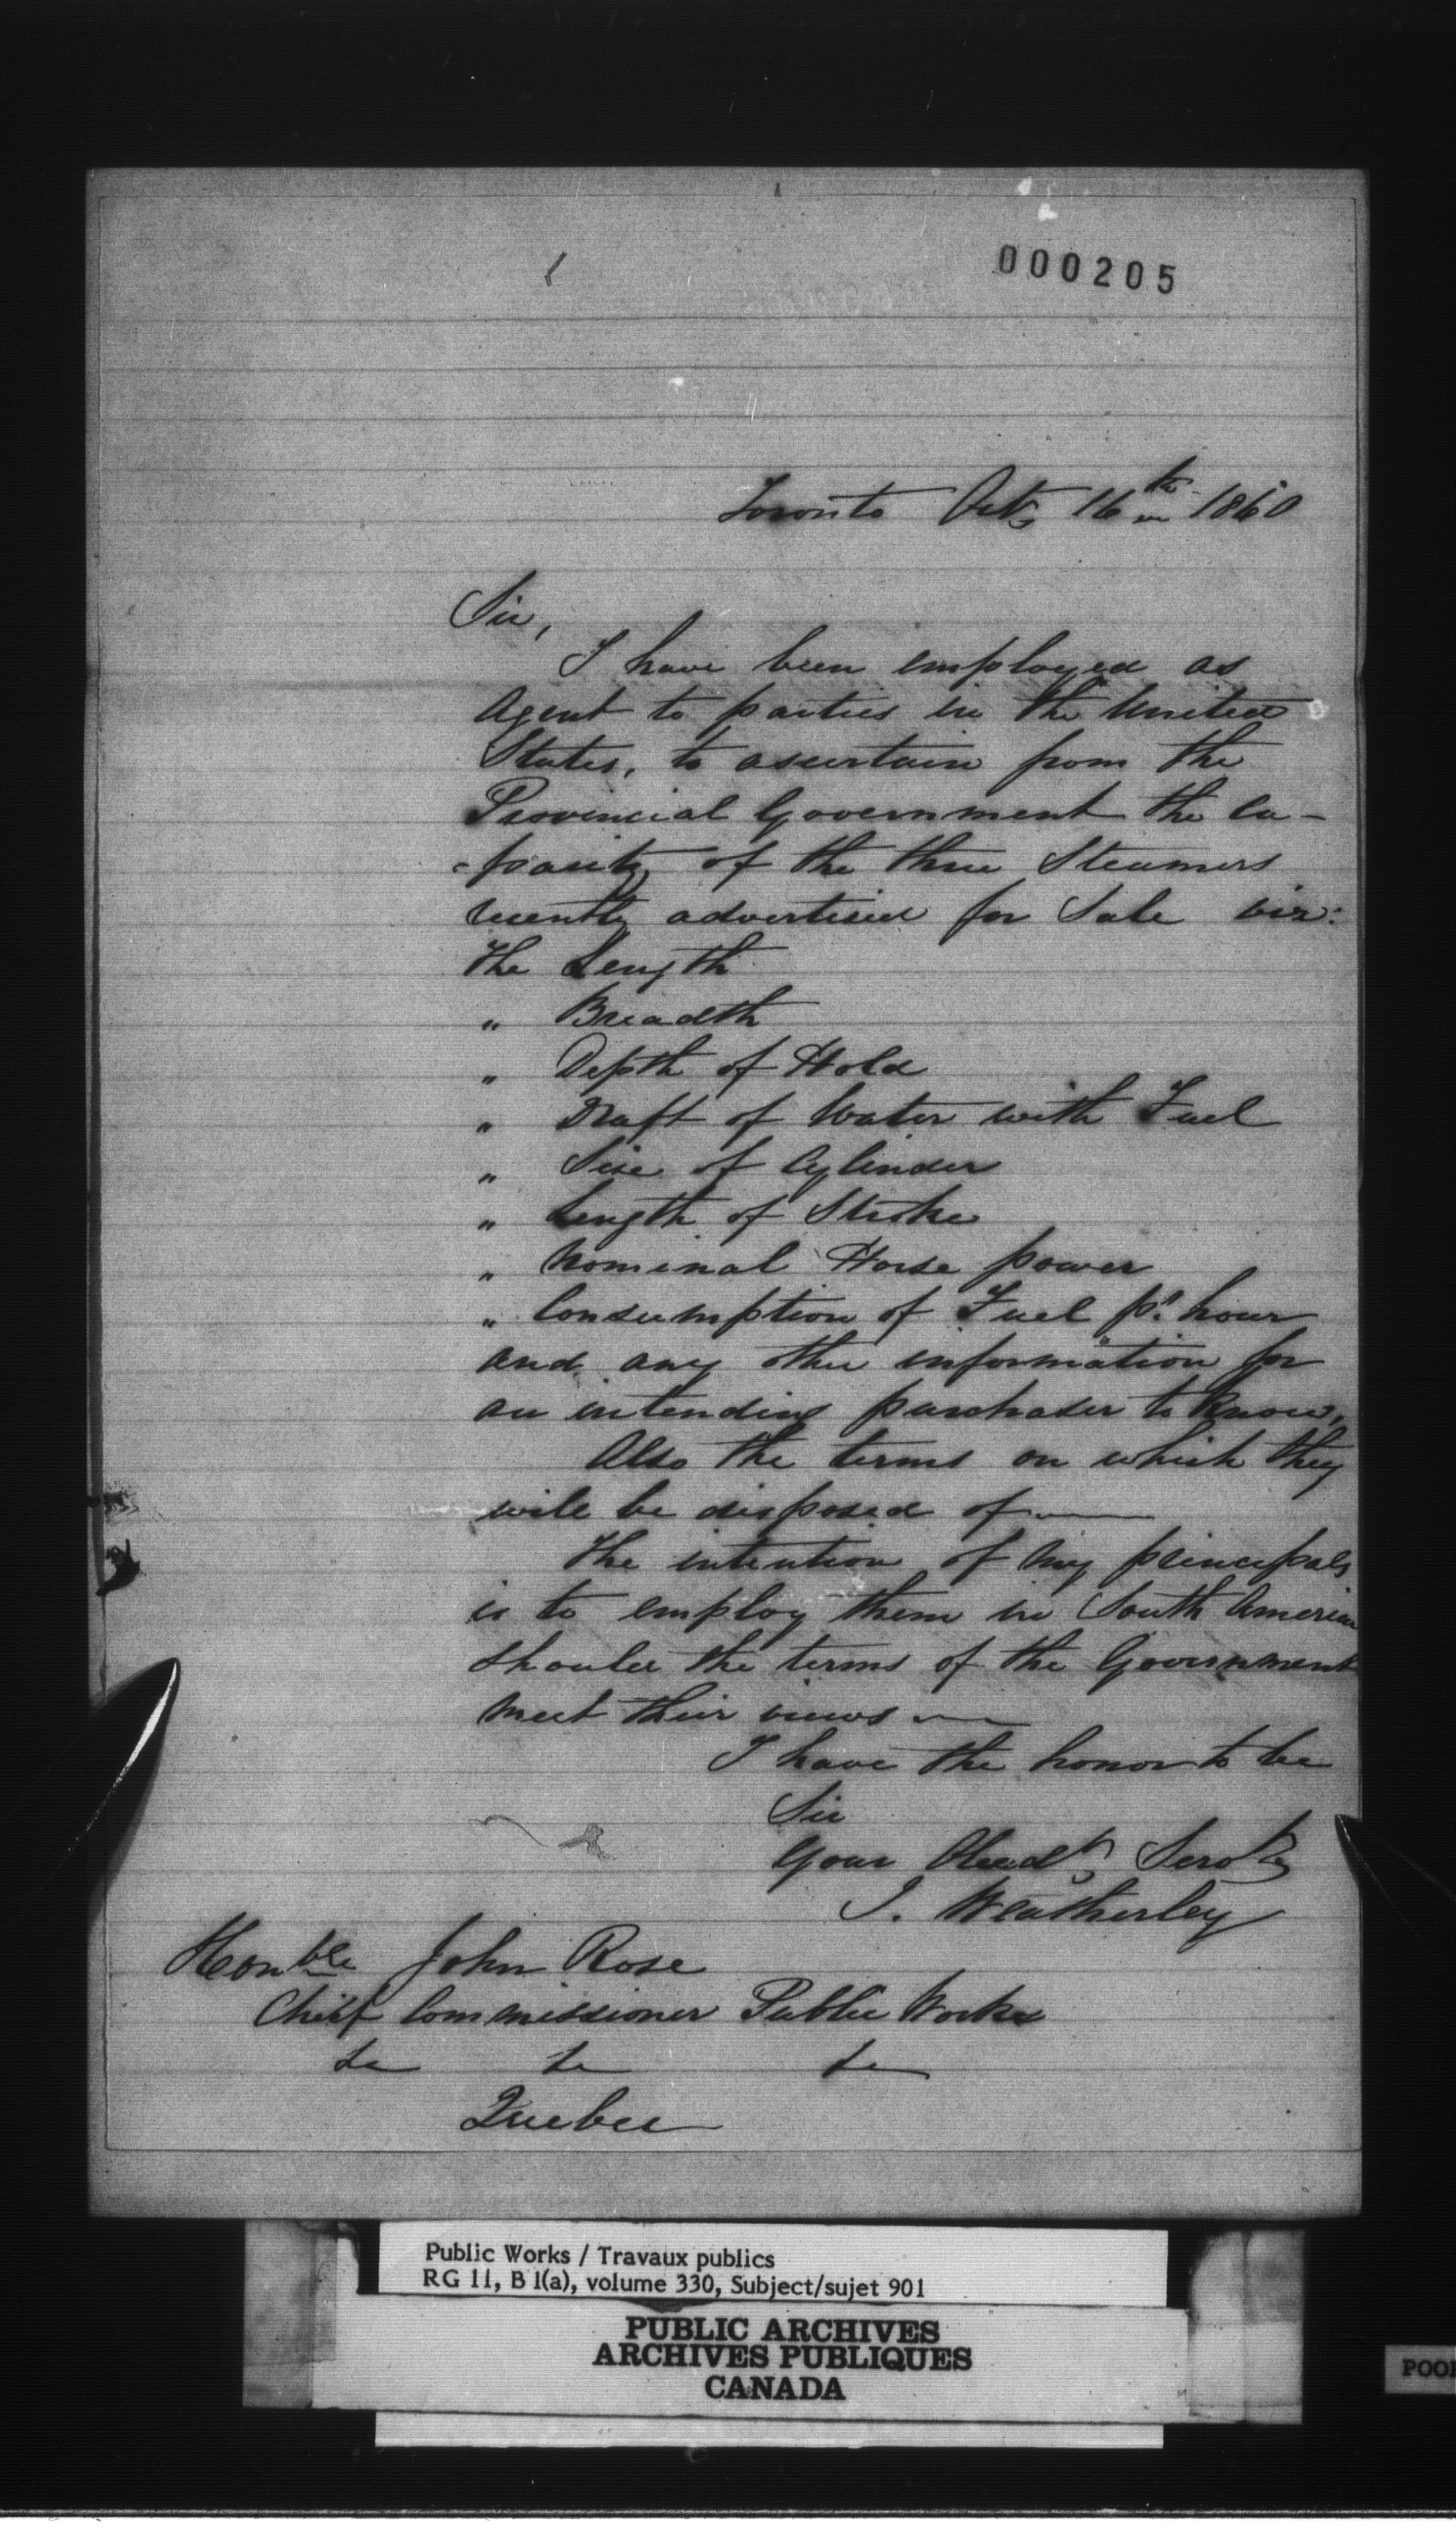 000205
Toronto Oct. 16th 1860
Sir,
I have been employed as
Agent to parties in the United
States, to ascertain from the
Provincial Government the ca-
-pacity of the three Steamers
recently advertised for Sale viz:
The Length
" Breadth
" Depth of Hold
" Draft of Water with Fuel
" Size of Cylinder
" Length of Stroke
" Nominal Horse power
" Consumption of Fuel pr. hour
and any other information for
an intending purchaser to know,
Also the terms on which they
will be disposed of
The intention of my principals
is to employ them in South America
should the terms of the Government
meet their views
I have the honor to be
Sir
Your Obedt Servt
J. Weatherley
Honble John Rose
Chief Commissioner Public Works
&c &c &c
Quebec
Public Works / Travaux publics
RG 11, B 1(a), volume 330, Subject/sujet 901
PUBLIC ARCHIVES
ARCHIVES PUBLIQUES
CANADA